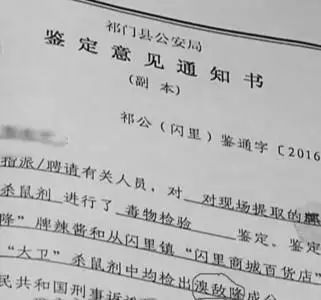 祁门县公安局
鉴定意见通知书
(副本)
祁公（闪里）鉴通字〔2016
指派/聘请有关人员，对 对现场提取的
杀鼠剂 进行了 毒物检验 鉴定。鉴定
隆”牌辣酱和从闪里镇“闪里商城百货店”
“大卫”杀鼠剂中均检出溴敌隆成
民共和国刑事诉讼